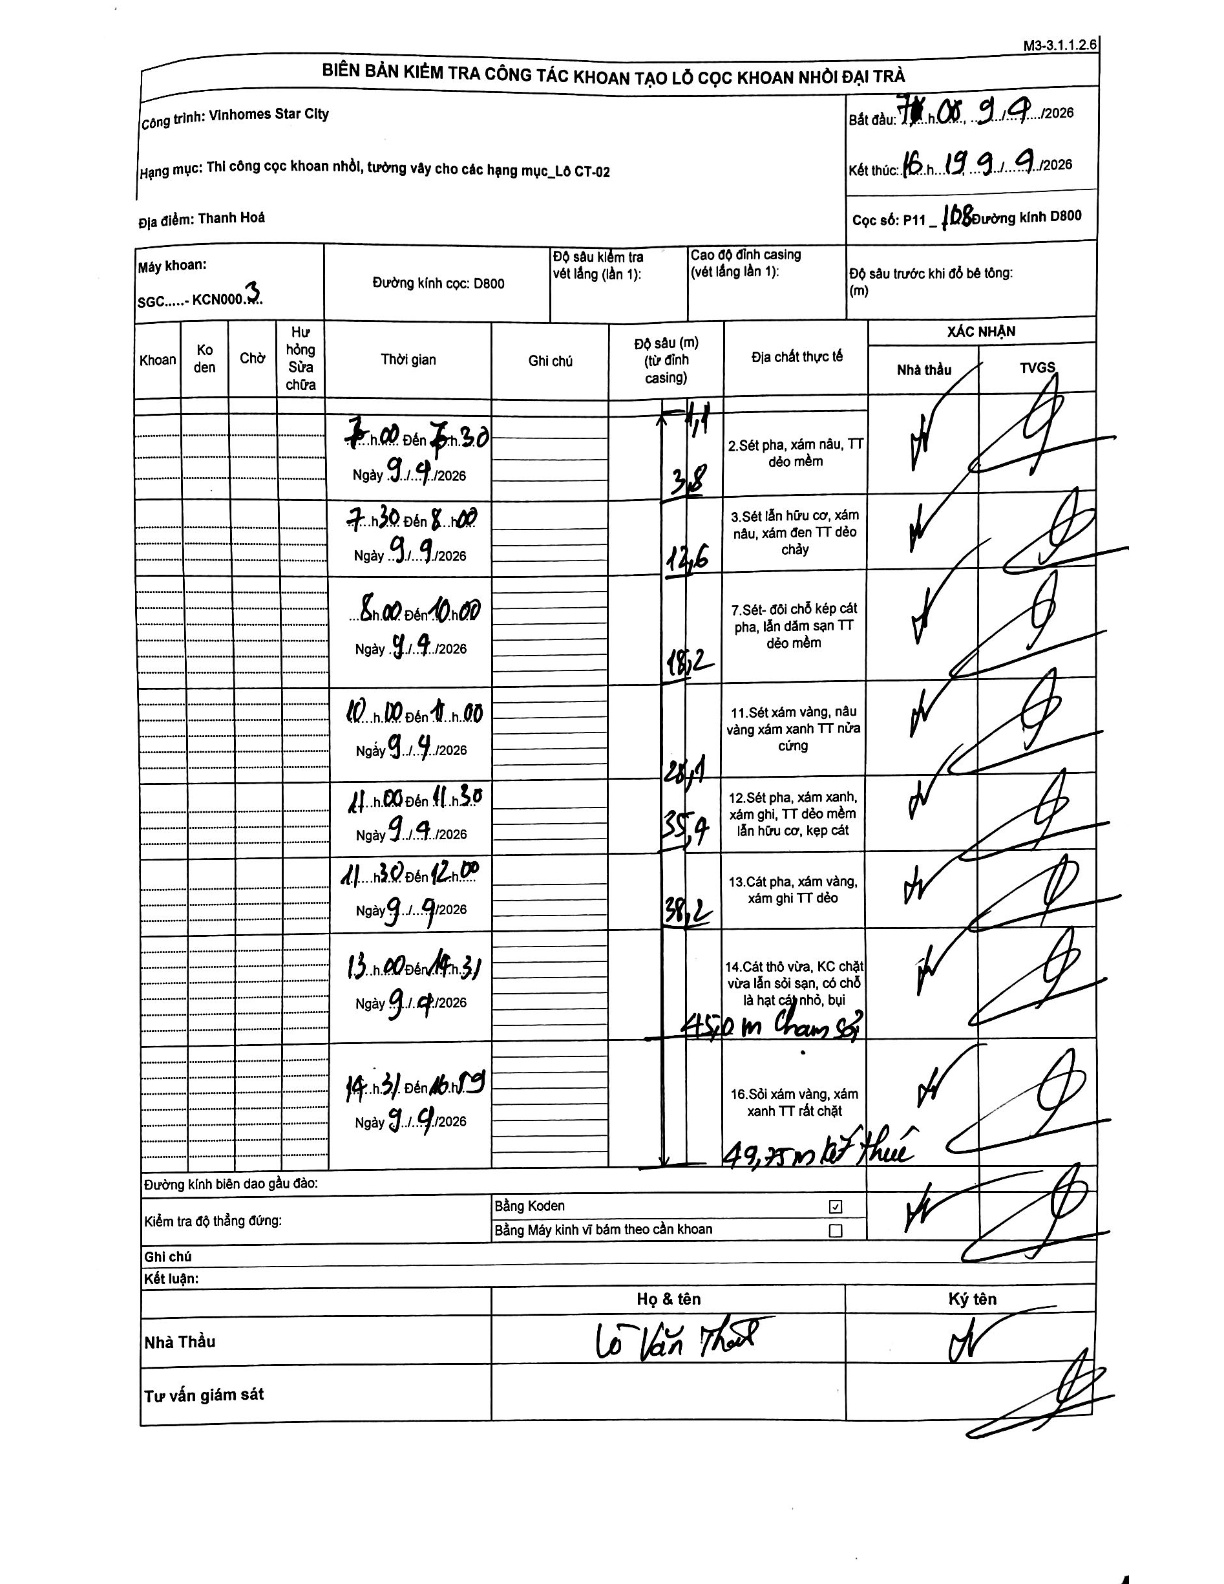 M3-3.1.1.2.6
BIÊN BẢN KIỂM TRA CÔNG TÁC KHOAN TẠO LỖ CỌC KHOAN NHỒI ĐẠI TRÀ
Công trình: Vinhomes Star City
Bắt đầu: 7 h 00, 9/9/2026
Hạng mục: Thi công cọc khoan nhồi, tường vây cho các hạng mục_Lô CT-02
Kết thúc: 16 h 19, 9/9/2026
Địa điểm: Thanh Hoá
Cọc số: P11 _ 108 Đường kính D800
Máy khoan:
SGC.....- KCN000.3
Đường kính cọc: D800
Độ sâu kiểm tra
vét lắng (lần 1):
Cao độ đỉnh casing
(vét lắng lần 1):
Độ sâu trước khi đổ bê tông:
(m)
Khoan
Ko
den
Chờ
Hư
hỏng
Sửa
chữa
Thời gian
Ghi chú
Độ sâu (m)
(từ đỉnh
casing)
Địa chất thực tế
XÁC NHẬN
Nhà thầu
TVGS
1,1
7 h 00 Đến 7 h 30
Ngày 9/9/2026
3,8
2.Sét pha, xám nâu, TT
dẻo mềm
7 h 30 Đến 8 h 00
Ngày 9/9/2026
12,6
3.Sét lẫn hữu cơ, xám
nâu, xám đen TT dẻo
chảy
8 h 00 Đến 10 h 00
Ngày 9/9/2026
18,2
7.Sét- đôi chỗ kép cát
pha, lẫn dăm sạn TT
dẻo mềm
10 h 00 Đến 11 h 00
Ngày 9/9/2026
11.Sét xám vàng, nâu
vàng xám xanh TT nửa
cứng
11 h 00 Đến 11 h 30
Ngày 9/9/2026
35,4
12.Sét pha, xám xanh,
xám ghi, TT dẻo mềm
lẫn hữu cơ, kẹp cát
11 h 30 Đến 12 h 00
Ngày 9/9/2026
38,2
13.Cát pha, xám vàng,
xám ghi TT dẻo
13 h 00 Đến 14 h 31
Ngày 9/9/2026
14.Cát thô vừa, KC chặt
vừa lẫn sỏi sạn, có chỗ
là hạt cát nhỏ, bụi
45,0 m Chạm sỏi
14 h 31 Đến 16 h 19
Ngày 9/9/2026
16.Sỏi xám vàng, xám
xanh TT rất chặt
49,75 m kết thúc
Đường kính biên dao gầu đào:
Kiểm tra độ thẳng đứng:
Bằng Koden ☑
Bằng Máy kinh vĩ bám theo cần khoan ☐
Ghi chú
Kết luận:
Họ & tên
Ký tên
Nhà Thầu
Lò Văn
Tư vấn giám sát